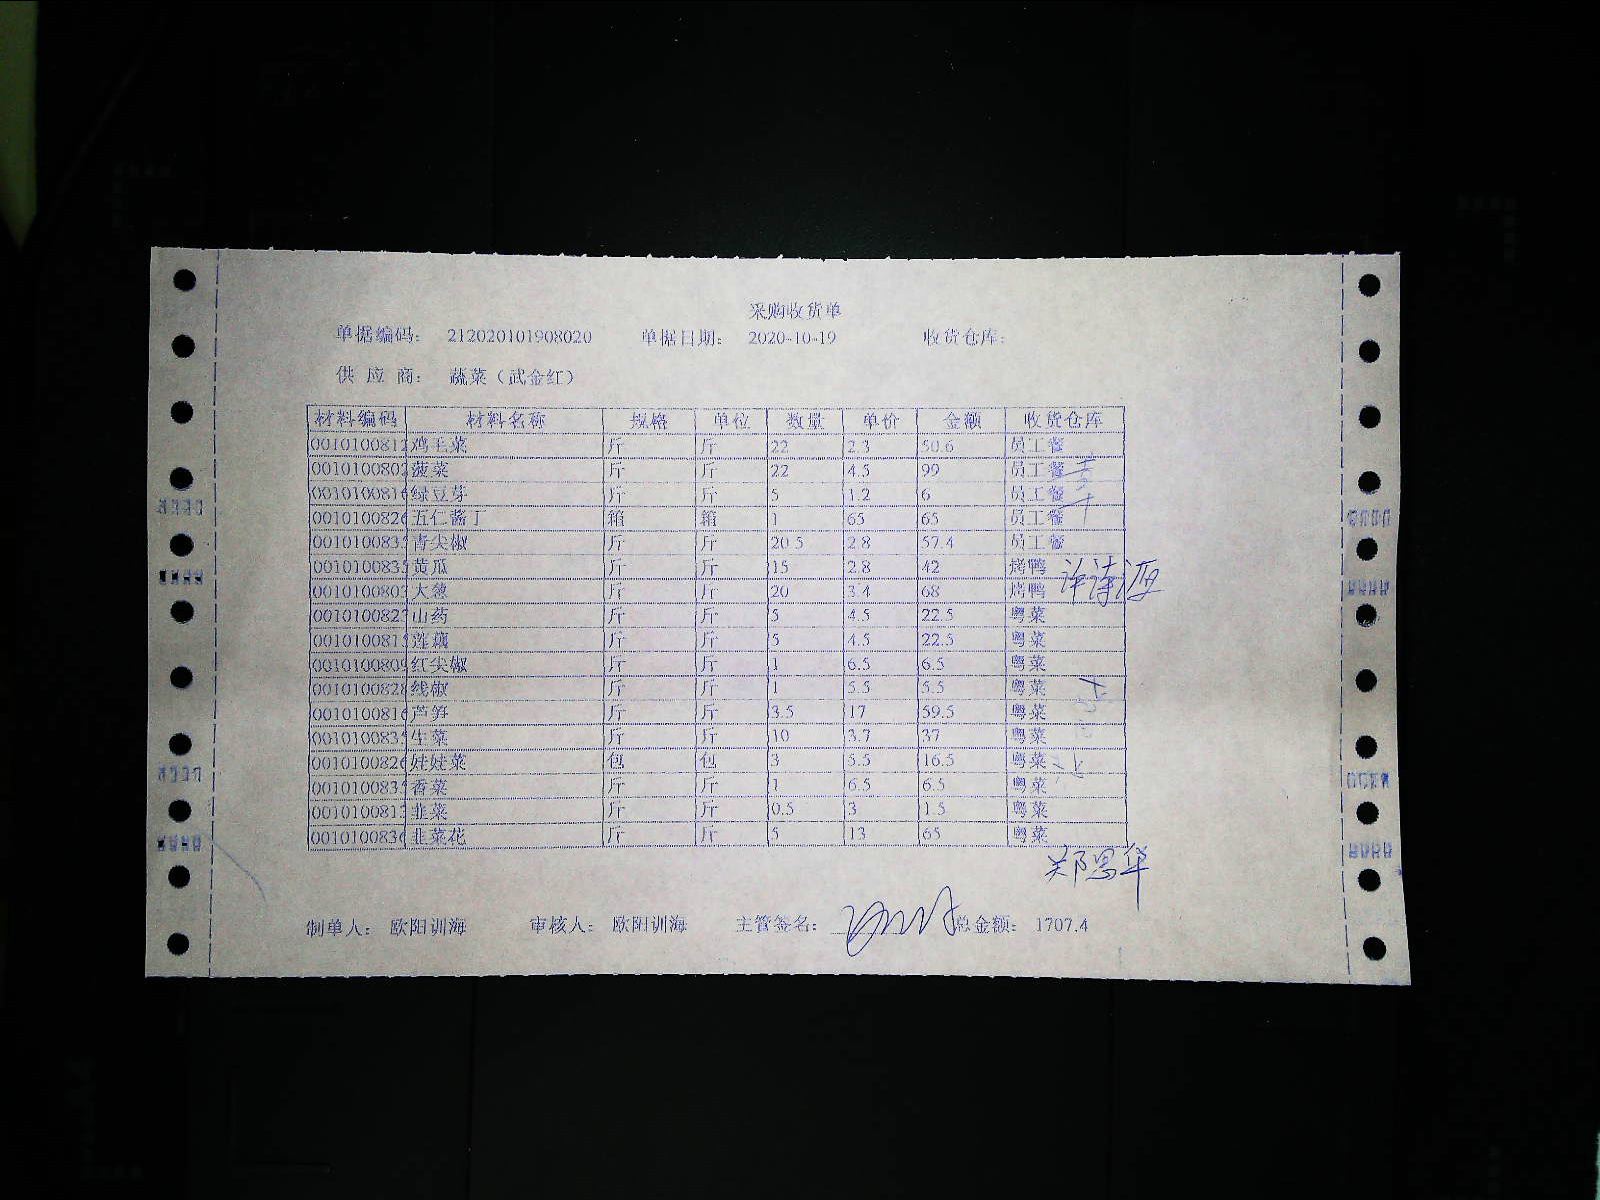 采购收货单
单据编码: 212020101908020 单据日期: 2020-10-19 收货仓库:
供 应 商: 蔬菜（武金红）
材料编码 材料名称 规格 单位 数量 单价 金额 收货仓库
0010100812 鸡毛菜 斤 斤 22 2.3 50.6 员工餐
0010100802 菠菜 斤 斤 22 4.5 99 员工餐
0010100816 绿豆芽 斤 斤 5 1.2 6 员工餐
0010100826 五仁酱丁 箱 箱 1 65 65 员工餐
0010100835 青尖椒 斤 斤 20.5 2.8 57.4 员工餐
0010100835 黄瓜 斤 斤 15 2.8 42 烤鸭
0010100803 大葱 斤 斤 20 3.4 68 烤鸭
0010100823 山药 斤 斤 5 4.5 22.5 粤菜
0010100815 莲藕 斤 斤 5 4.5 22.5 粤菜
0010100809 红尖椒 斤 斤 1 6.5 6.5 粤菜
0010100828 线椒 斤 斤 1 5.5 5.5 粤菜
0010100816 芦笋 斤 斤 3.5 17 59.5 粤菜
0010100835 生菜 斤 斤 10 3.7 37 粤菜
0010100826 娃娃菜 包 包 3 5.5 16.5 粤菜
0010100835 香菜 斤 斤 1 6.5 6.5 粤菜
0010100813 韭菜 斤 斤 0.5 3 1.5 粤菜
0010100836 韭菜花 斤 斤 5 13 65 粤菜
郑思华
制单人: 欧阳训海 审核人: 欧阳训海 主管签名: 总金额: 1707.4